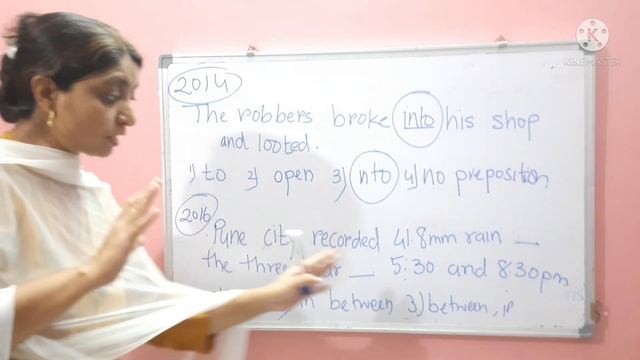 KINEMASTER
2014
The robbers broke into his shop
and looted.
1) to 2) open 3) into 4) no preposition
2016
Pune city recorded 41.8mm rain —
the three — 5:30 and 8:30pm
in between 3) between, in